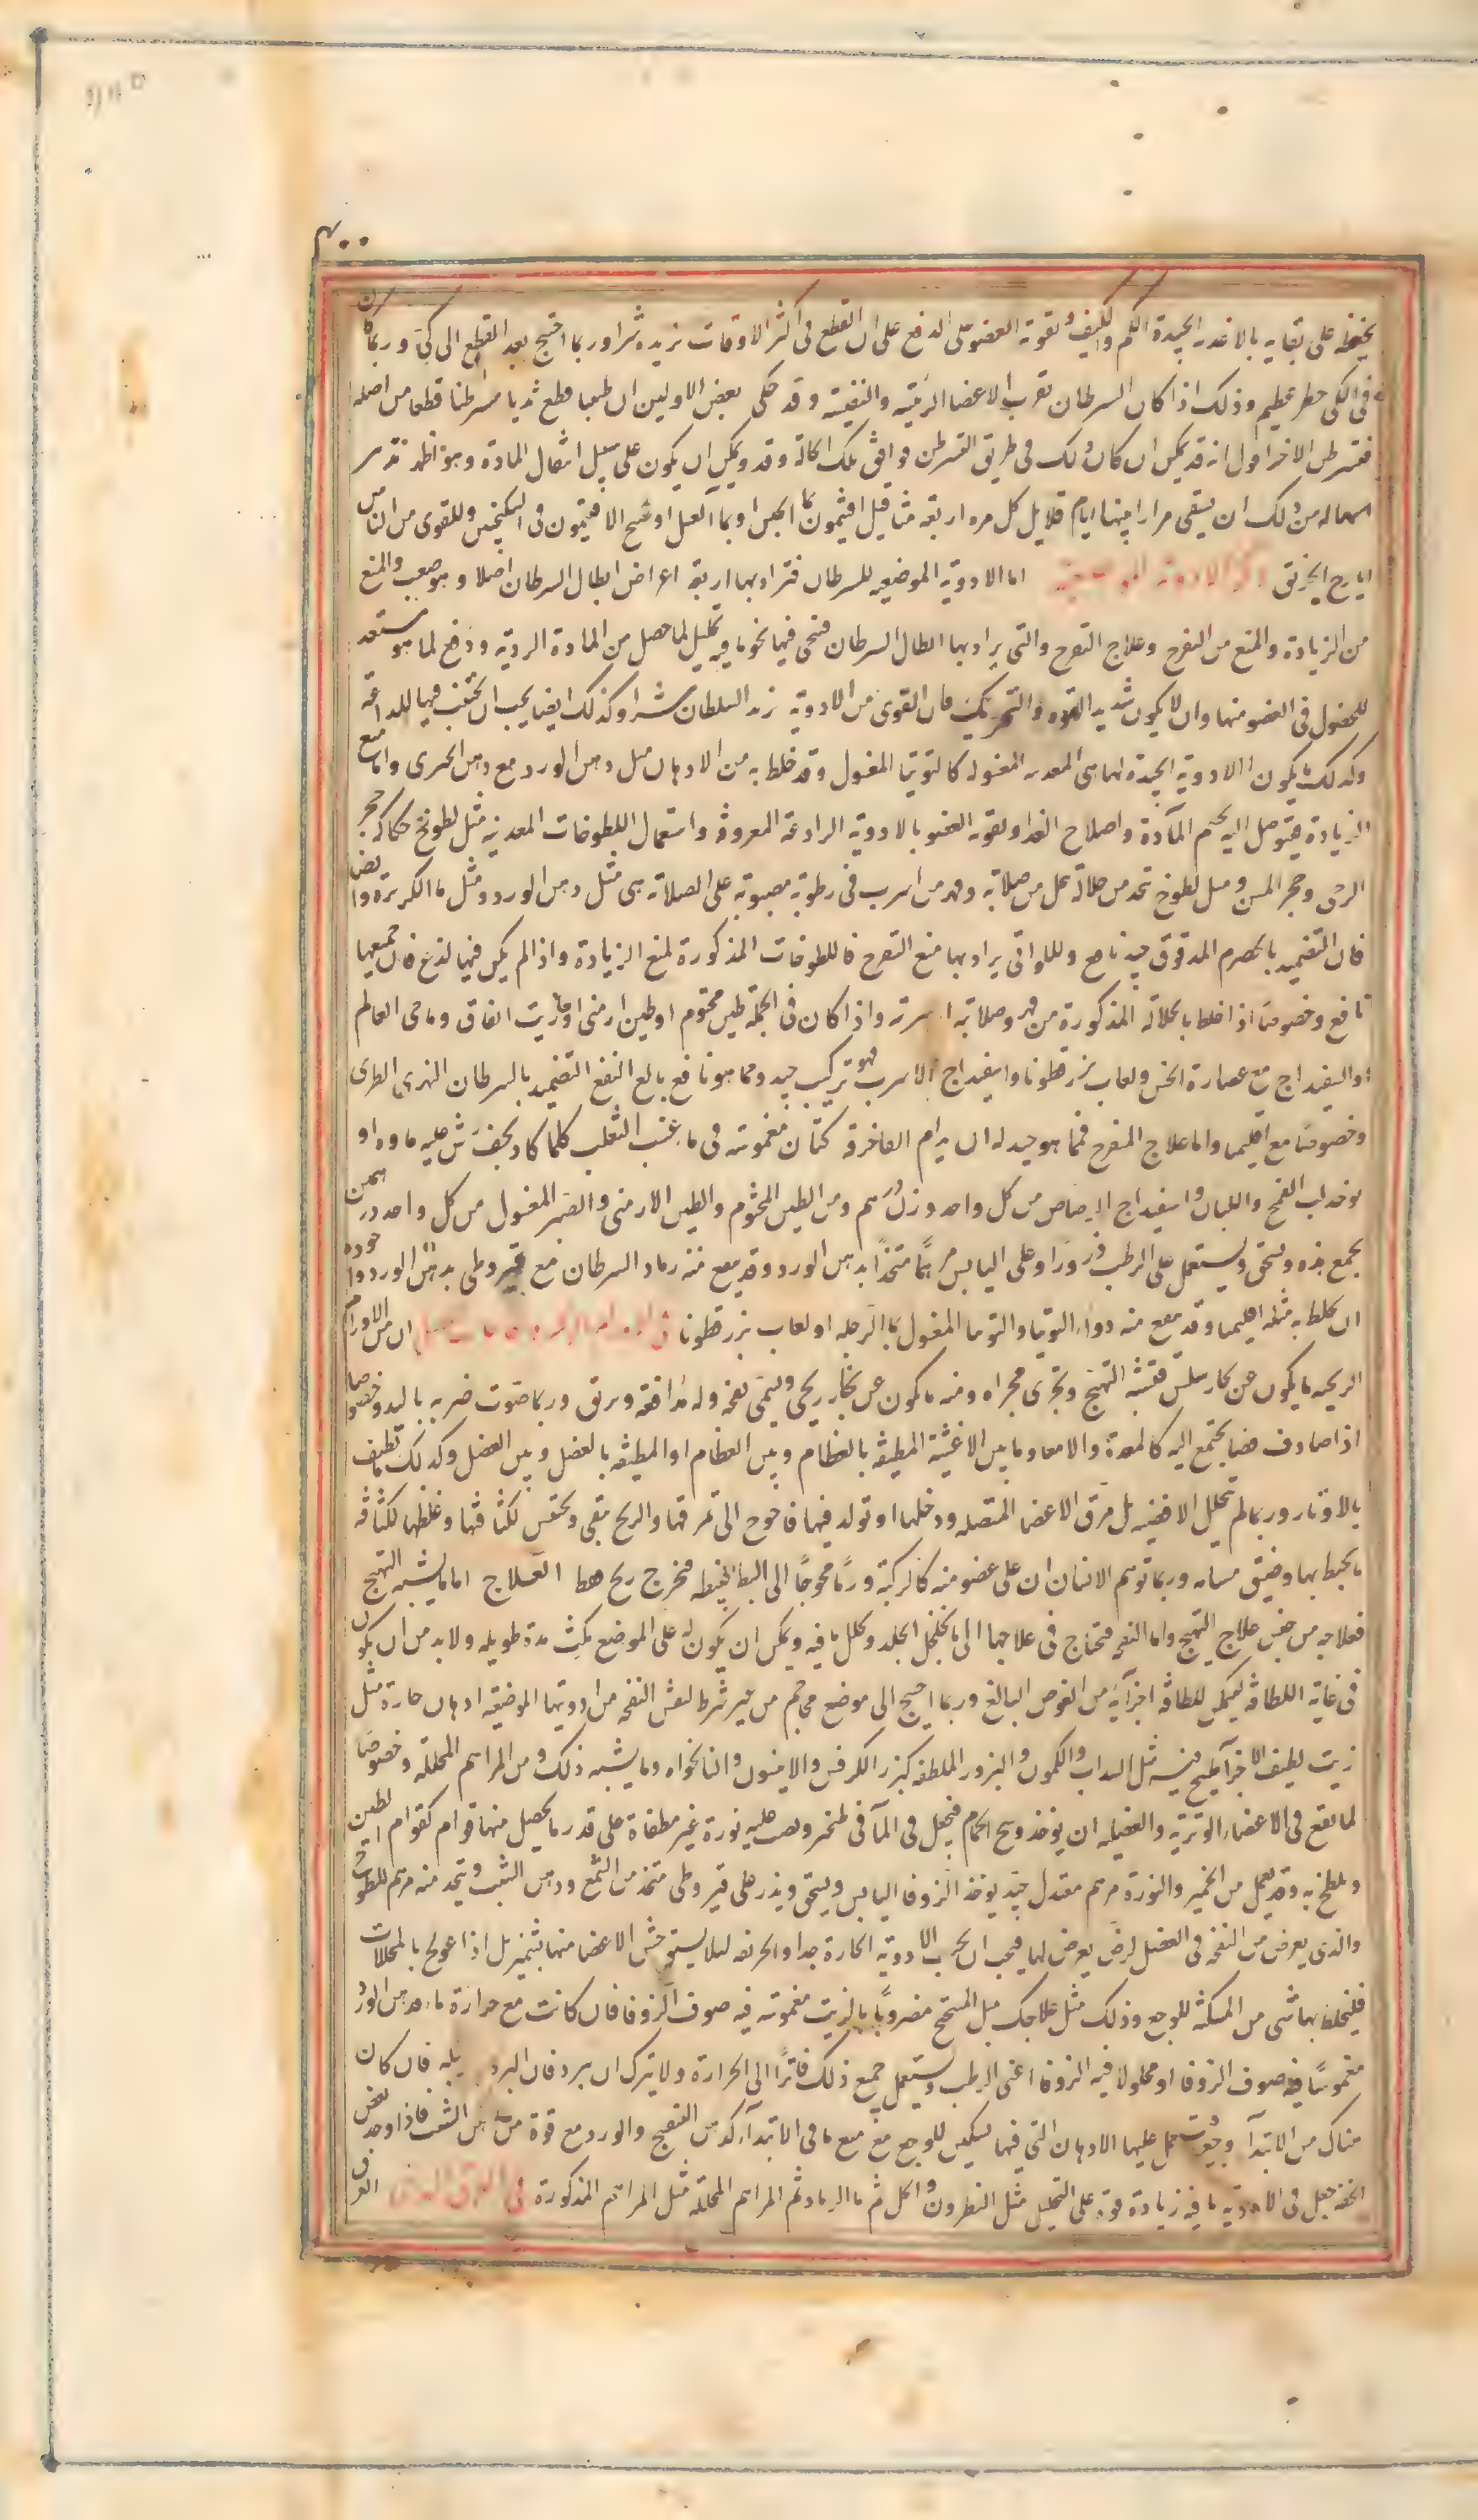 يحفظه على بقايه بالاغذية الجيدة الكم والكيف وتقوية العضو على الدفع على ان القطع فى اكثر الاوقات يزيده شرا وربما احتيج بعد القطع الى كى وربما كان
فى الكى خطر عظيم وذلك اذا كان السرطان بقرب الاعضا الرئيسة والنفيسة وقد حكى بعض الاولين ان طبيبا قطع ثديا مسرطنا قطعا من اصله
فتسرطن الاخر اقول انه قد يمكن ان كان ذلك فى طريق التسرطن فوافق تلك الحالة وقد ويمكن ان يكون على سبيل انتقال المادة وهو اظهر
اسهاله من ذلك ان يسقى مرارا بينها ايام قلايل كل مرة اربعة مثاقيل افيثمون بماء الجبن او بماء العسل او طبيخ الافيثمون فى السكنجبين وللقوى من الناس
ايارج الخربق اما الادوية الموضعية للسرطان فتراد بها اربعة اعراض ابطال السرطان اصلا وهو صعب والمنع
من الزيادة والمنع من التقرح وعلاج التقرح والتى يراد بها ابطال السرطان فنحى فيها نحو ما فيه تحليل لما حصل من المادة الردية ودفع لما هو مستعد
للحصول فى العضو منها وان لا يكون شديد القوة والتحريك فان القوى من الادوية يزيد السلطان شرا وكذلك ايضا يجب ان تجتنب فيها اللداعة
وكذلك يكون الادوية الجيدة لها هى المعدنية المغسولة كالتوتيا المغسول وقد خلط به من الادهان مثل دهن الورد مع دهن الخيرى واما منع
الزيادة فيتوصل اليه بحسم المادة واصلاح الغذا وتقوية العضو بالادوية الرادعة المعروفة واستعمال اللطوخات المعدنية مثل لطوخ حكاكة حجر
الرحى وحجر المسن ومثل لطوخ تتخذ من حلالة تحل من صلاية وفهر من اسرب فى رطوبة مصبوبة على الصلاية هى مثل دهن الورد ومثل ما الكزبرة وايضا
فان التضميد بالحصرم المدقوق جيد نافع واللواتى يراد بها منع التقرح فاللطوخات المذكورة لمنع الزيادة واذا لم يكن فيها لذع فان جميعها
نافع وخصوصا اذا خلط بالحلالة المذكورة من فهر وصلاية اسربية واذا كان فى الجملة طين مختوم او طين ارمنى او زيت انفاق وما حى العالم
والسفيداج مع عصارة الخس ولعاب بزرقطونا واسفيداج الاسرب فهو تركيب جيد ومما هو نافع بالغ النفع التضميد بالسرطان النهرى الطرى
وخصوصا مع اقليميا واما علاج المتقرح فمما هو جيد له ان يدام القا خرقة كتان مغموسة فى ماء عنب الثعلب كلما كاد يجف رش عليه ماوه او
يوخذ لب القمح واللبان واسفيداج الرصاص من كل واحد وزن درهم ومن الطين المختوم والطين الارمنى والصبر المغسول من كل واحد درهمين
يجمع هذه وتسحق ويستعمل على الرطب ذرورا وعلى اليابس مرهما متخذا بدهن الورد وقد ينفع منه رماد السرطان مع قيروطى بدهن الورد واجوده
ان يخلط به مثله اقليميا وقد ينفع منه دواء التوتيا والتوتيا المغسول بماء الرجلة او لعاب بزرقطونا ان من الاورام
الريحية ما يكون عن بخار سلس فتشبه التهيج وتجرى مجراه ومنه ما يكون عن بخار ريحى ويسمى نفخة وله مدافعة وبرق وربما صوت ضربه باليد وخصوصا
اذا صادف فضا يجتمع اليه كالمعدة والامعا وما بين الاغشية المطيفة بالعظام وبين العظام او المطيفة بالعضل وبين العضل وكذلك ما يطيف
بالاوتار وربما لم تتحلل الافضية بل مزق الاعضا المتصلة ودخلها او تولد فيها فاحوج الى تمزقها والريح يبقى ويحتقن لكثافتها وغلظها لكثافة
ما يحيط بها وضيق مسامه وربما توهم الانسان ان على عضو منه كالركبة ورما محوجا الى البط فيبطه فيخرج ريح فقط العلاج اما ما يشبه التهيج
فعلاجه من جنس علاج التهيج واما النفخة فتحتاج فى علاجها الى ما يخلخل الجلد وتحلل ما فيه ويمكن ان يكون له على الموضع مكث مدة طويلة ولا بد من ان يكون
فى غاية اللطافة ليمكن للطافة اجزايه من الغوص البالغ وربما احتيج الى موضع محاجم من غير شرط لفش النفخة من ادويتها الموضعية ادهان حارة مثل
زيت لطيف الاجزا طبخ فيه مثل السداب والكمون والبزور الملطفة كبزر الكرفس والانيسون والنانخواه وما يشبه ذلك ومن المراهم المحللة وخصوصا
لما يقع فى الاعضاء الوترية والعضلية ان يوخذ وسخ الحمام فيجعل فى الماء فى طنجير ويصب عليه نورة غير مطفاة على قدر ما يحصل منها قوام كقوام الطين
ويلطخ به وقد يعمل من الخمير والنورة مرهم معتدل جيد يوخذ الزوفا اليابس ويسحق ويذر على قيروطى متخذ من الشمع ودهن الشبت ويتخذ منه مرهم للطوخ
والذى يعرض من النفخة فى العضل لرض يعرض لها فيجب ان تجرب الادوية الحارة جدا والحريفة ليلا يستوحش الاعضا منها فتشمئز بل اذا عولج بالمحللات
فليخلط بها شى من المسكنة للوجع وذلك مثل علاجك مثل المنضج مضروبا بالزيت مغموسة فيه صوف الزوفا فان كانت مع حرارة فدهن الورد
مغموسا فيه صوف الزوفا او محلولا فيه الزوفا اعنى الرطب ويستعمل جميع ذلك فاترا الى الحرارة ولا يترك ان يبرد فان البرد فان كان
هناك من الابتدآ وجع حمل عليها الادهان التى فيها تسكين للوجع مع منع ما فى الابتدآ كدهن البنفسج والورد مع قوة من دهن الشبت فاذا وجد بعض
الخفة جعل فى الادوية ما فيه زيادة قوة على التحليل مثل النطرون والخل ثم ما الرماد ثم المراهم المحللة مثل المراهم المذكورة العرق